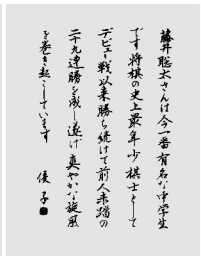 藤井聡太さんは今一番有名な中学生
です将棋の史上最年少棋士として
デビュー戦以来勝ち続けて前人未踏の
二十九連勝を成し遂げ爽やかな旋風
を巻き起こしています
優子